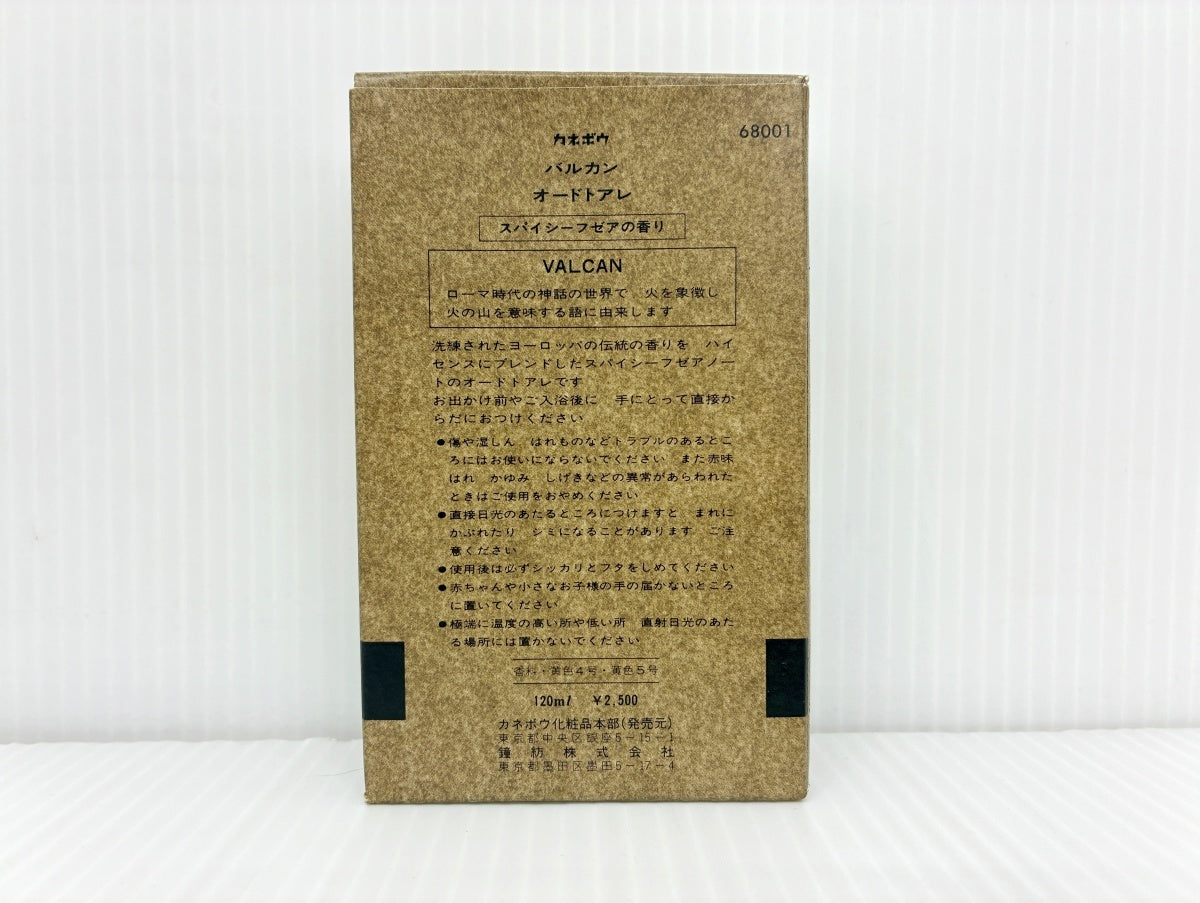 68001
カネボウ
バルカン
オードトアレ
スパイシーフゼアの香り
VALCAN
ローマ時代の神話の世界で、火を象徴し
火の山を意味する語に由来します
洗練されたヨーロッパの伝統の香りを ハイ
センスにブレンドしたスパイシーフゼアノー
トのオードトアレです
お出かけ前やご入浴後に 手にとって直接か
らだにおつけください
●傷や湿しん、はれものなどトラブルのあるとこ
ろにはお使いにならないでください また赤味
はれ かゆみ しげきなどの異常があらわれた
ときはご使用をおやめください
●直接日光のあたるところにつけますと、まれに
かぶれたり シミになることがあります ご注
意ください
●使用後は必ずシッカリとフタをしめてください
●赤ちゃんや小さなお子様の手の届かないところ
に置いてください
●極端に温度の高い所や低い所 直射日光のあた
る場所には置かないでください
香料・黄色4号・黄色5号
120ml ¥2,500
カネボウ化粧品本部(発売元)
東京都中央区銀座5-15-1
鐘紡株式会社
東京都墨田区墨田5-17-4